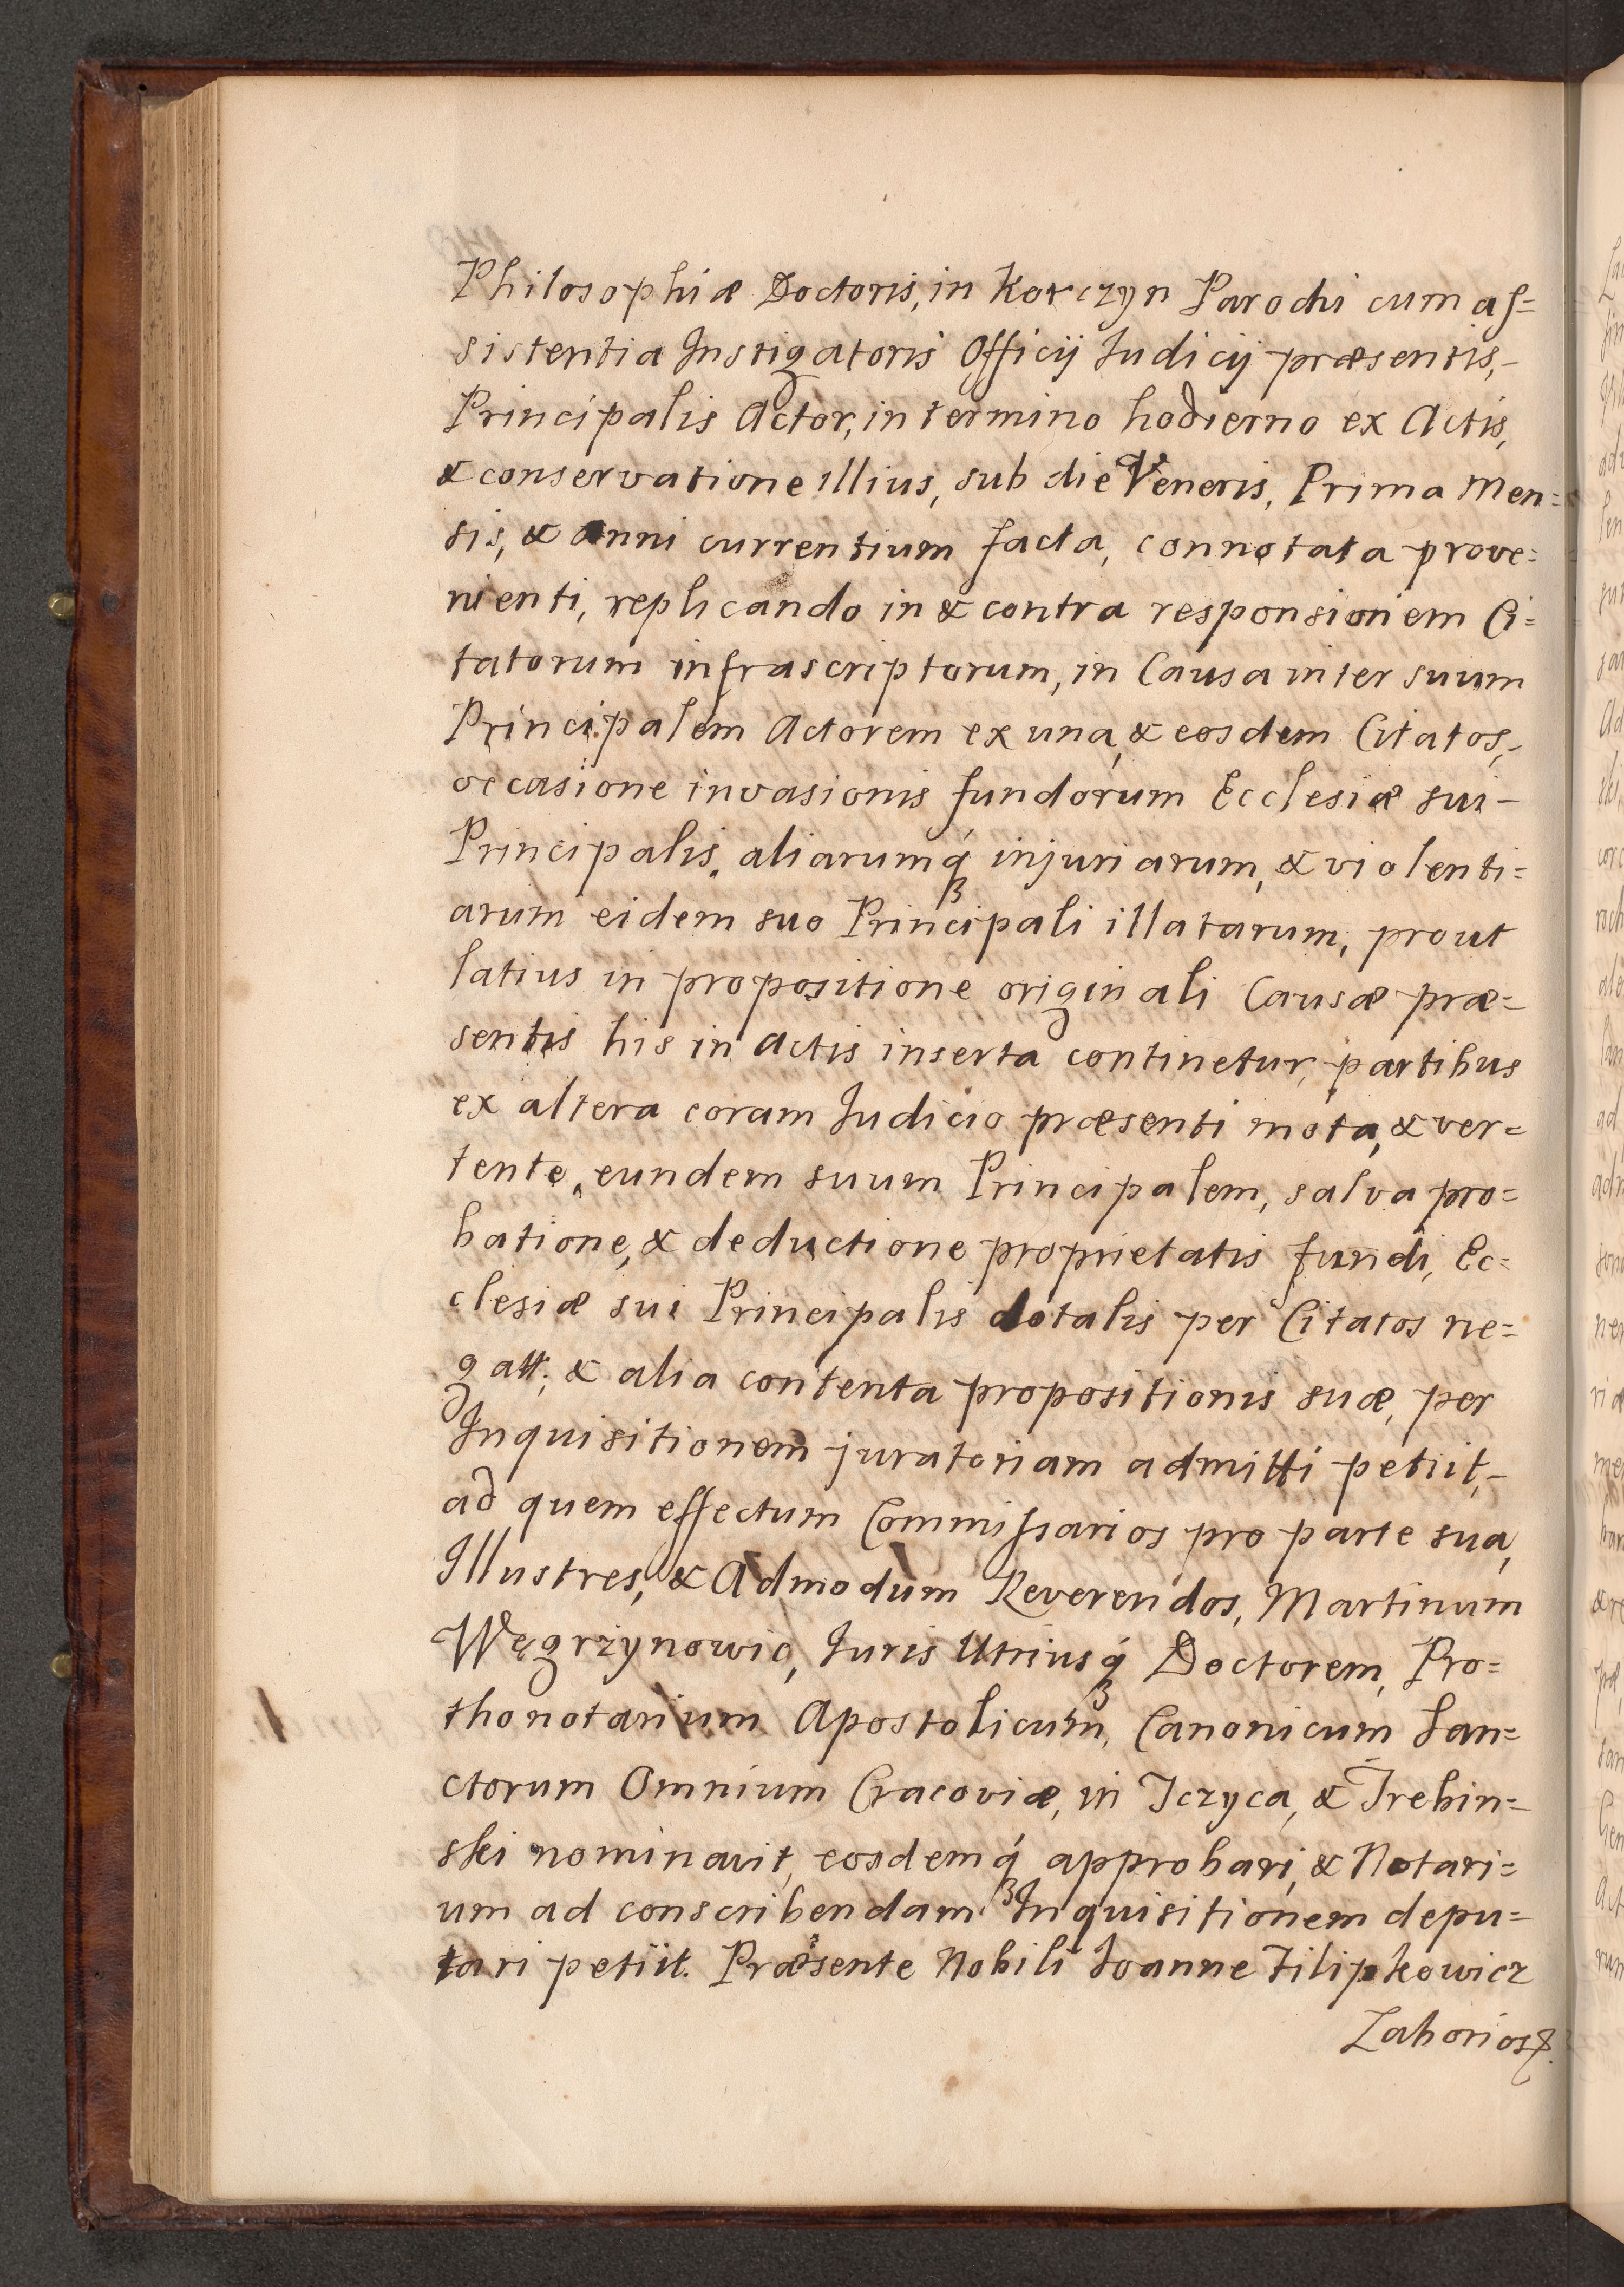 Philosophiæ Doctoris, in Korczyn Parochi cum aſ=
sistentia Instigatoris Officij Iudicij præsentis,-
Principalis Actor, in termino hodierno ex Actis,
& conservatione illius, sub die Veneris, Prima Men=
sis, & anni currentium facta, connotata prove=
nienti, replicando in & contra responsionem Ci=
tatorum infrascriptorum, in Causa inter suum
Principalem Actorem ex una, & eosdem Citatos,-
occasione invasionis fundorum Ecclesiæ sui-
Principalis, aliarumq́ꝫ injuriarum, & violenti=
arum eidem suo Principali illatarum, prout
latius in propositione originali Causæ præ=
sentis his in Actis inserta continetur, partibus
ex altera coram Iudicio præsenti mota, & ver=
tente, eundem suum Principalem, salva pro=
batione, & deductione proprietatis fundi, Ec=
clesiæ sui Principalis dotalis per Citatos ne=
gatt; & alia contenta propositionis suæ, per
Inquisitionem juratoriam admitti petiit,-
ad quem effectum Commiſsarios pro parte sua,
Illustres, & Admodum Reverendos, Martinum
Węgrzynowic, Iuris Utriusq́ꝫ Doctorem, Pro=
thonotarium Apostolicum, Canonicum San=
ctorum Omnium Cracoviæ, in Iczyca, & Trebin=
ski nominavit, eosdemq́ꝫ approbari, & Notari=
um ad conscribendam Inquisitionem depu=
tari petiit. Præsente Nobili Ioanne Filipkowicz